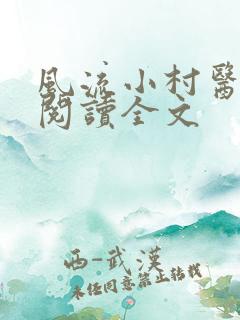 風流小村醫
閱讀全文
西-武漢
未經同意禁止轉載